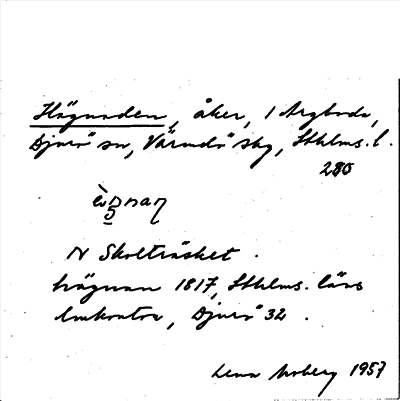 Högnaden, åker, 1 Argboda,
Djurö sn, Värmdö skg, Sthlms. l.
280
N Skolträsket.
högnan 1817, Sthlms. läns
lmkontor, Djurö 32.
Lena Moberg 1957